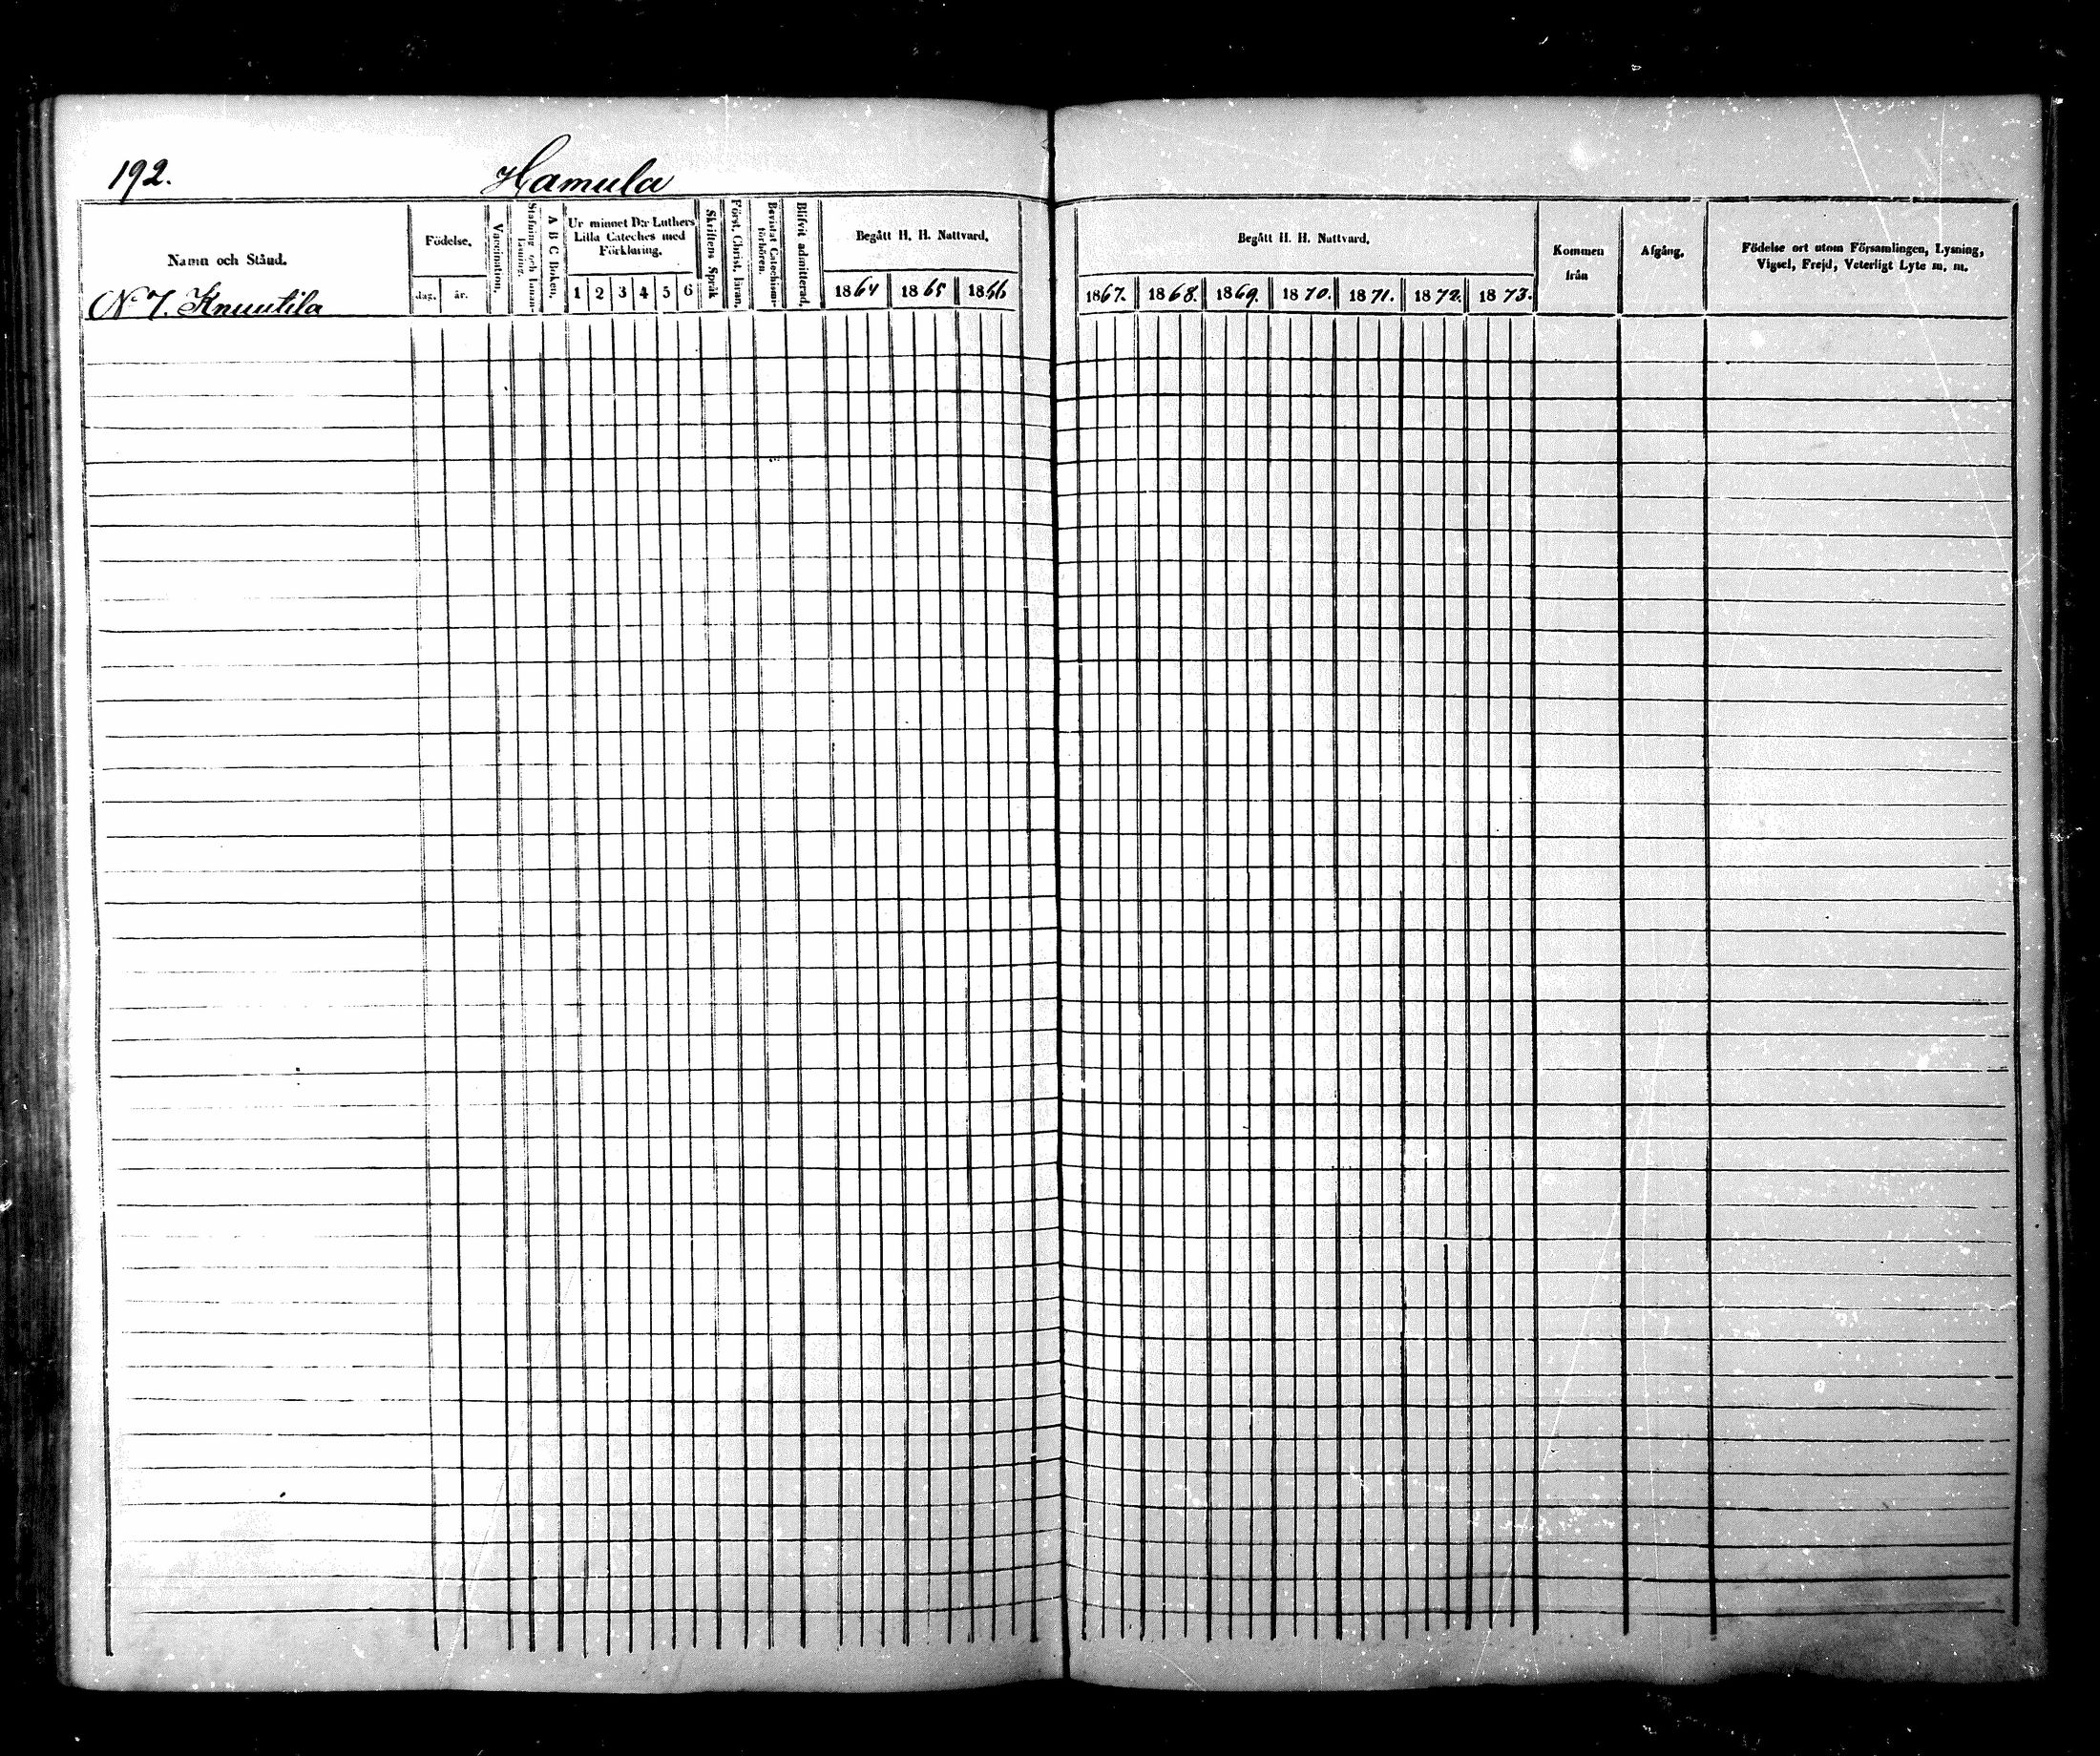 192.
Hamula
Namn och Stånd.
Födelse.
dag.
år.
Vaccination.
Stafning och Innan-
läsning.
A B C Boken.
Ur minnet D:r Luthers
Lilla Cateches med
Förklaring.
1 2 3 4 5 6
Skriftens Språk
Först. Christ. läran.
Bevistat Catechism-
förhören.
Blifvit admitterad.
Begått H. H. Nattvard.
1864 1865 1866
No 7. Knuutila
Begått H. H. Nattvard.
1867. 1868. 1869. 1870. 1871. 1872. 1873.
Kommen
från
Afgång.
Födelse ort utom Församlingen, Lysning,
Vigsel, Frejd, Veterligt Lyte m. m.